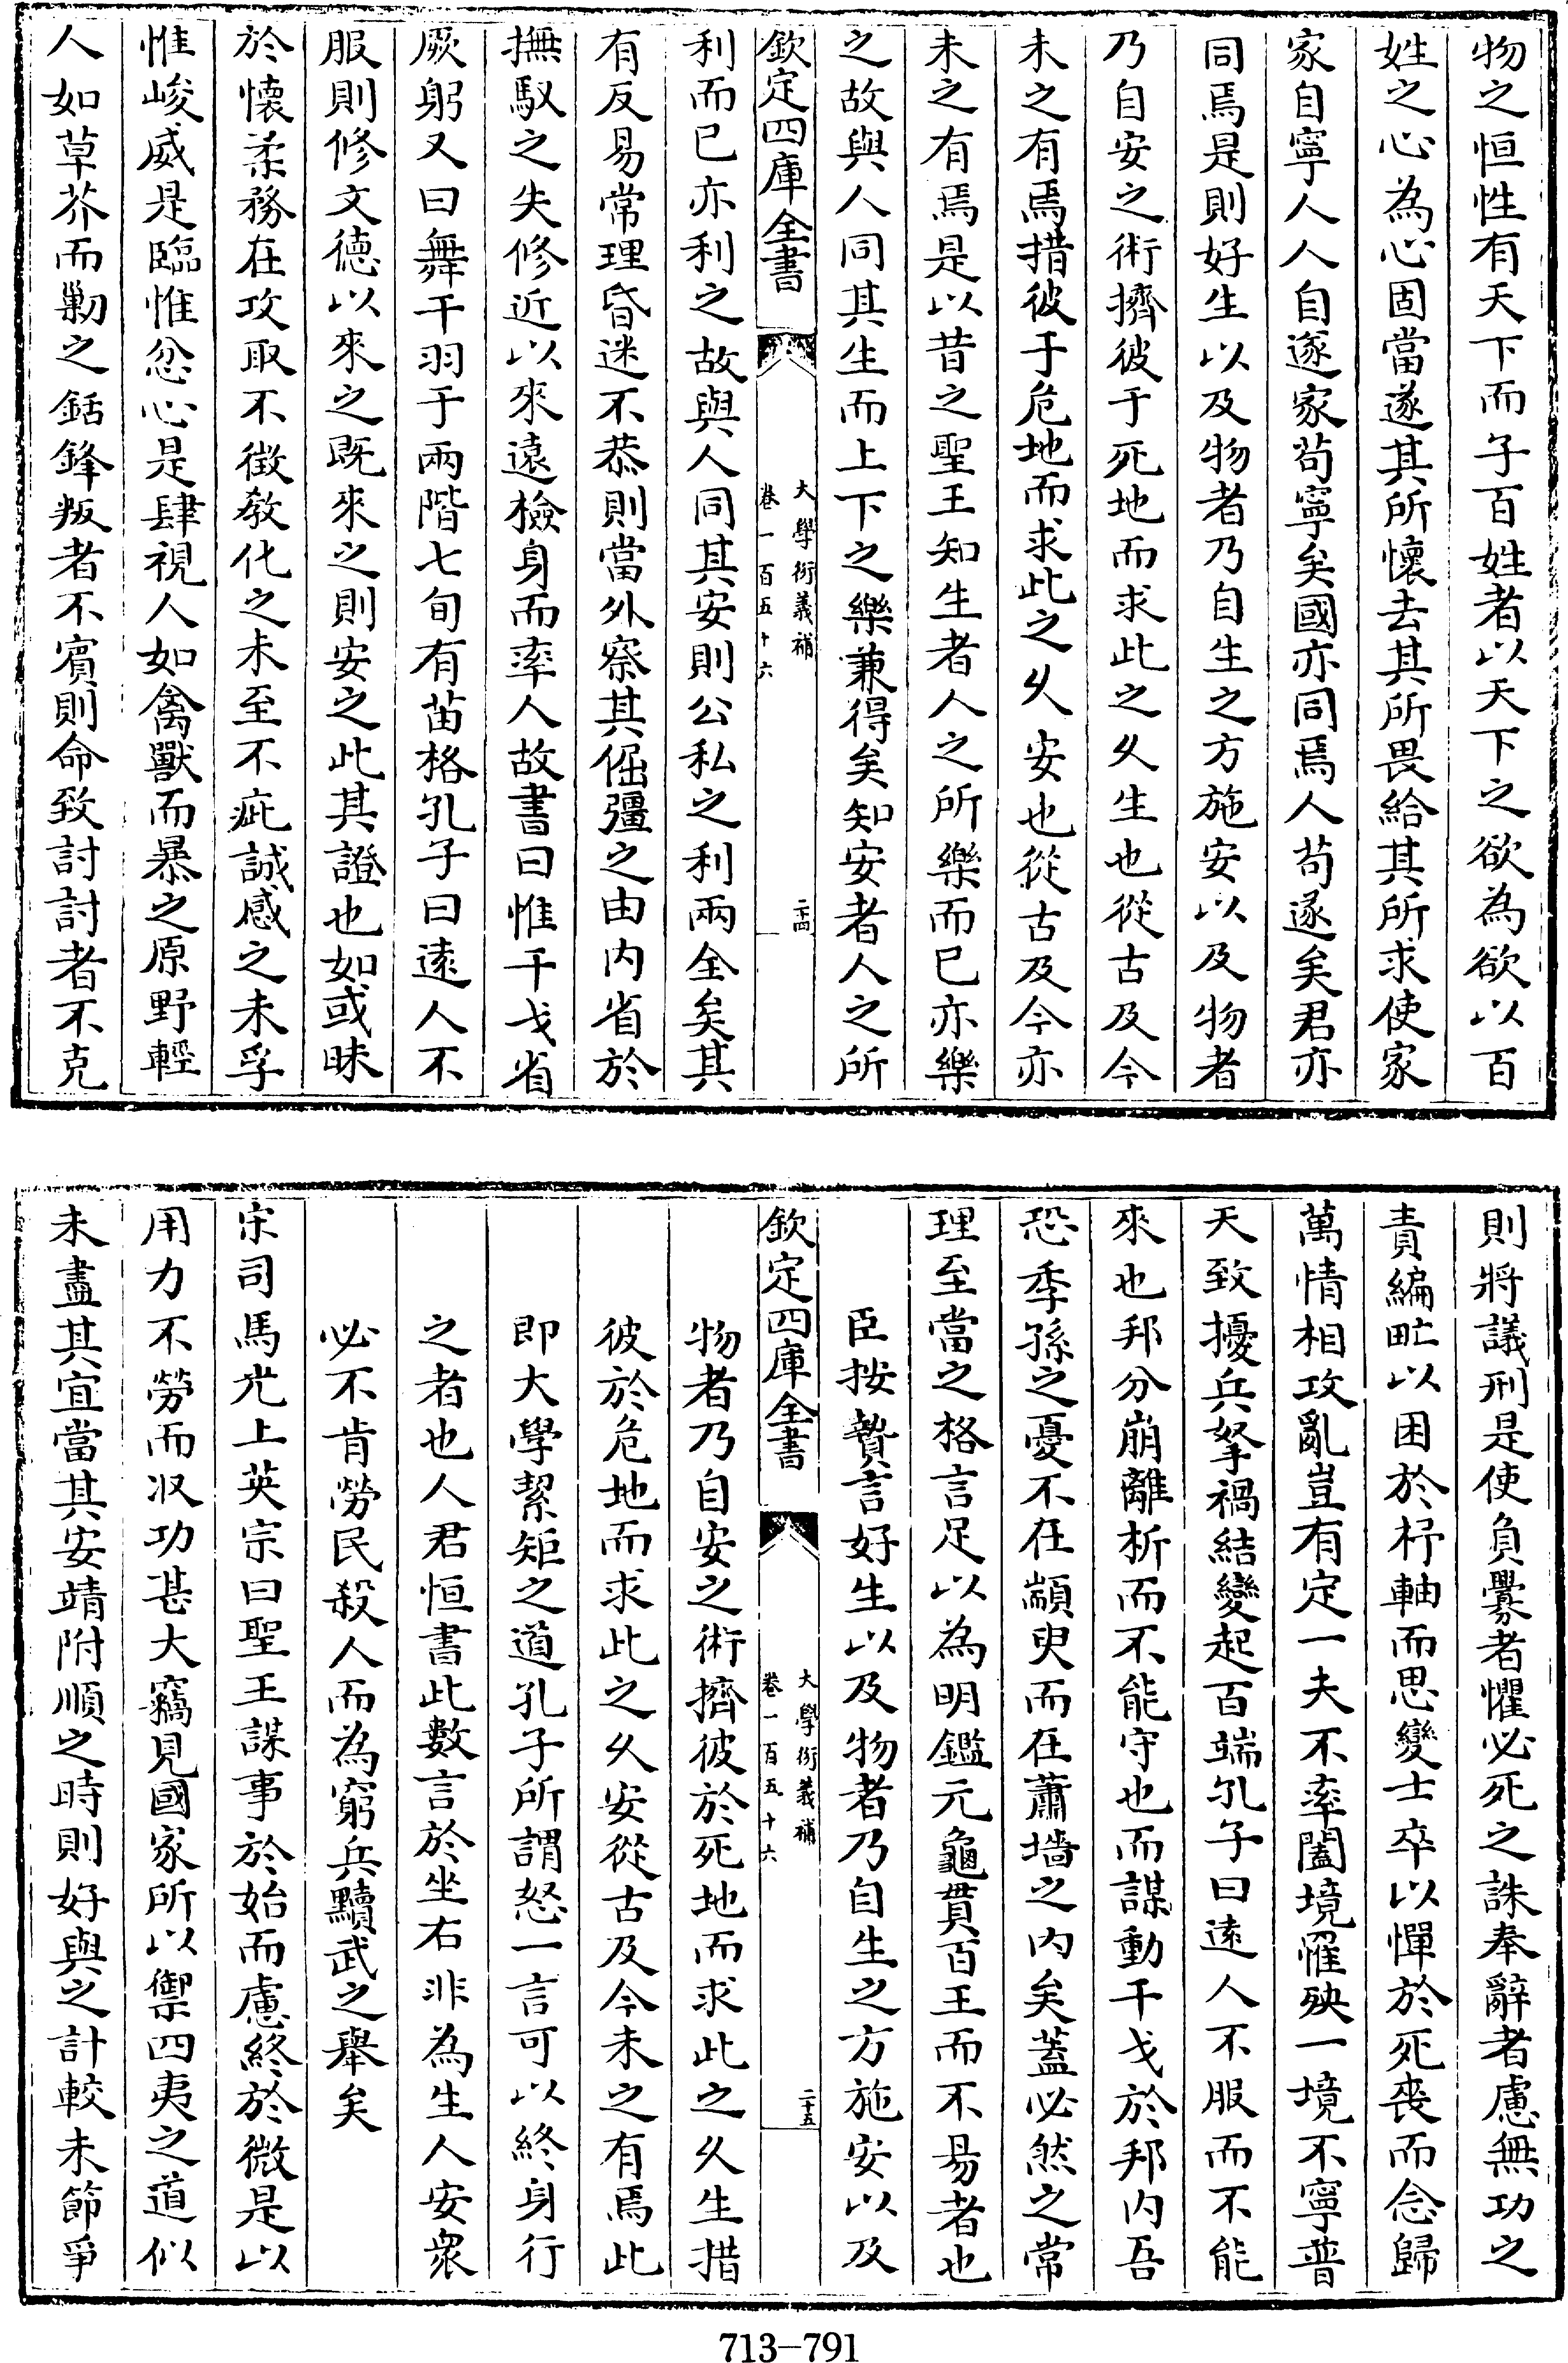 物之恒性有天下而子百姓者以天下之欲為欲以百
姓之心為心固當遂其所懷去其所畏給其所求使家
家自寧人人自遂家苟寧矣國亦同焉人苟遂矣君亦
同焉是則好生以及物者乃自生之方施安以及物者
乃自安之術擠彼于死地而求此之乆生也從古及今
未之有焉措彼于危地而求此之乆安也從古及今亦
未之有焉是以昔之聖王知生者人之所樂而已亦樂
之故與人同其生而上下之樂兼得矣知安者人之所
欽定四庫全書
大學衍義補
卷一百五十六
二十四
利而已亦利之故與人同其安則公私之利兩全矣其
有反易常理昏迷不恭則當外察其倔彊之由内省於
撫馭之失修近以來遠檢身而率人故書曰惟干戈省
厥躬又曰舞干羽于兩階七旬有苗格孔子曰遠人不
服則修文德以來之既來之則安之此其證也如或昧
於懷柔務在攻取不徴敎化之未至不疵誠感之未孚
惟峻威是臨惟忿心是肆視人如禽獸而暴之原野輕
人如草芥而勦之銛鋒叛者不賓則命致討討者不克
則將議刑是使負釁者懼必死之誅奉辭者慮無功之
責編甿以困於杼軸而思變士卒以憚於死喪而念歸
萬情相攻亂豈有定一夫不率闔境罹殃一境不寧普
天致擾兵拏禍結變起百端孔子曰逺人不服而不能
來也邦分崩離析而不能守也而謀動干戈於邦内吾
恐季孫之憂不在顓臾而在蕭墻之内矣蓋必然之常
理至當之格言足以為明鑑元龜貫百王而不易者也
臣按贄言好生以及物者乃自生之方施安以及
欽定四庫全書
大學衍義補
卷一百五十六
二十五
物者乃自安之術擠彼於死地而求此之乆生措
彼於危地而求此之乆安從古及今未之有焉此
即大學絜矩之道孔子所謂恕一言可以終身行
之者也人君恒書此數言於坐右非為生人安衆
必不肯勞民殺人而為窮兵黷武之舉矣
宋司馬光上英宗曰聖王謀事於始而慮終於微是以
用力不勞而収功甚大竊見國家所以禦四夷之道似
未盡其宜當其安靖附順之時則好與之計較末節爭
713-791